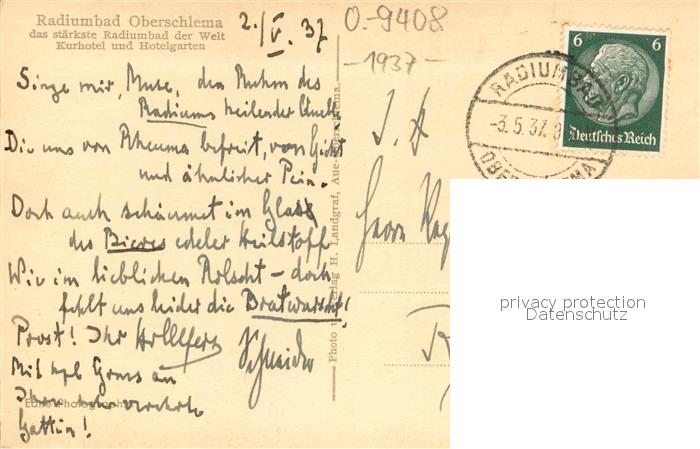 Radiumbad Oberschlema
das stärkste Radiumbad der Welt
Kurhotel und Hotelgarten
2./V. 37
O.-9408
-1937-
Singe mir, Muse, den Ruhm des
Radiums heilender Quelle
Die uns von Rheuma befreit, von Gicht
und ähnlicher Pein.
Doch auch schäumet im Glase
des Bieres edeler Heilstoff
Wie im lieblichen - doch
fehlt uns leider die Bratwurscht!
Prost! Ihr
Schneider
Mit Gruss an
Ihre verehrte
Gattin!
Photo u. Verlag H. Landgraf, Aue-
Herrn
RADIUMBAD
-3.5.37.
6 6
Deutsches Reich
privacy protection
Datenschutz